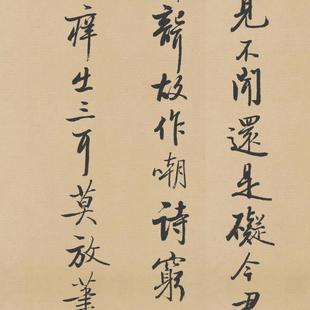 見不聞還是礙今君
聾故作嘲詩窮
癢出三耳莫放筆